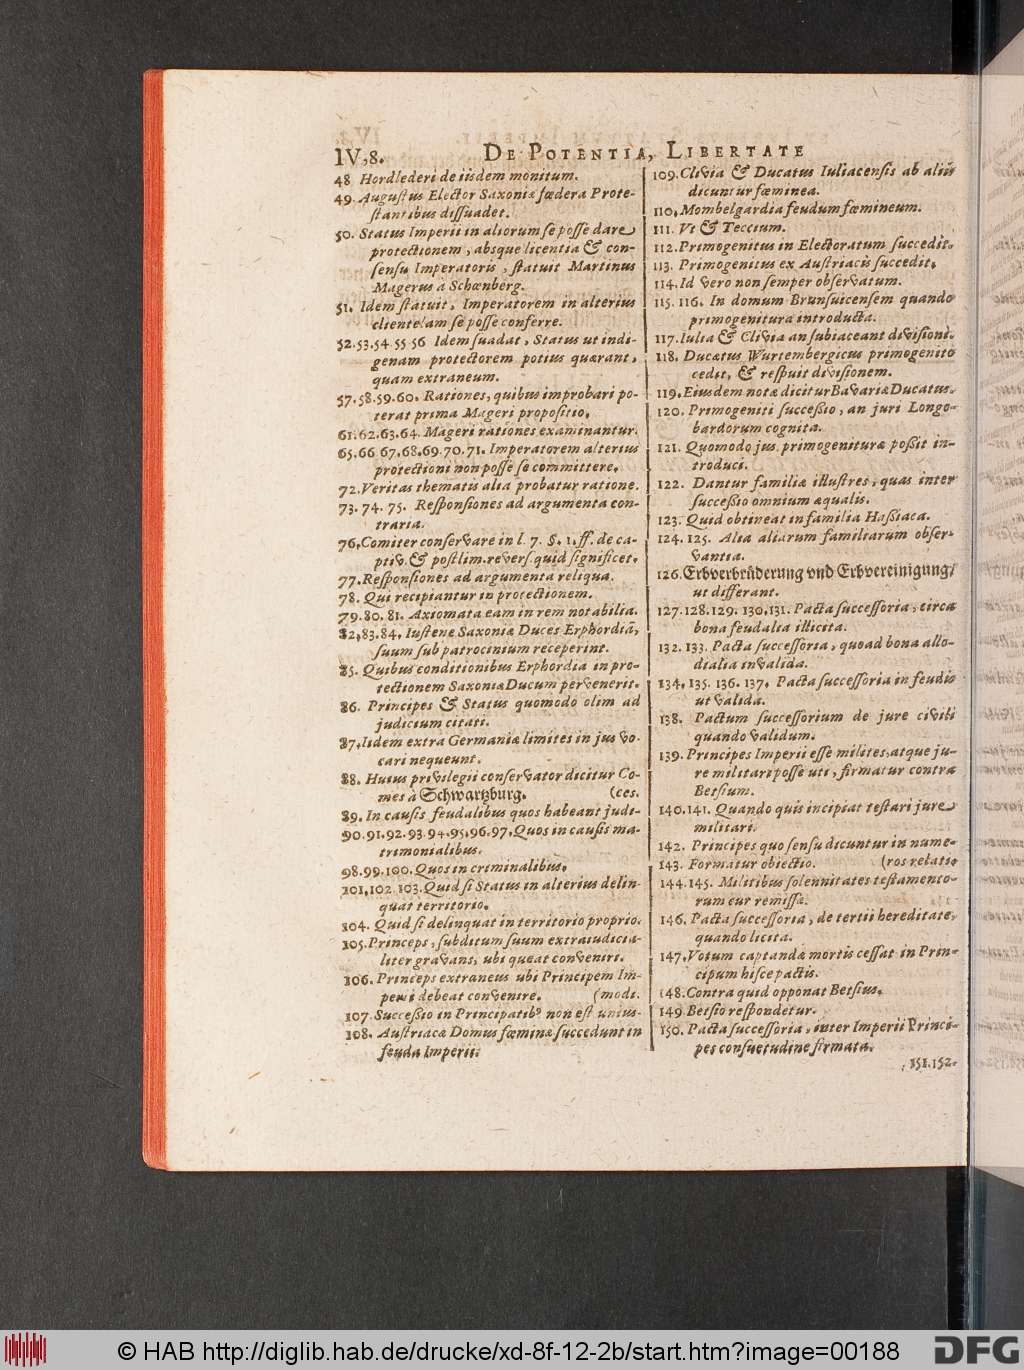 IV,8.
DE POTENTIA, LIBERTATE
48 Hordlederi de iisdem monitum.
49. Augustus Elector Saxoniæ fœdera Prote-
stantibus dissuadet.
50. Status Imperii in aliorum se posse dare
protectionem, absque licentia & con-
sensu Imperatoris, statuit Martinus
Magerus a Schœnberg.
51. Idem statuit, Imperatorem in alterius
clientelam se posse conferre.
52.53.54 55 56 Idem suadat, Status ut indi-
genam protectorem potius quærant,
quam extraneum.
57.58.59.60. Rationes, quibus improbari po-
terat prima Mageri propositio.
61.62.63.64. Mageri rationes examinantur.
65.66 67.68.69.70.71. Imperatorem alterius
protectioni non posse se committere.
72. Veritas thematis alia probatur ratione.
73. 74. 75. Responsiones ad argumenta con-
traria.
76. Comiter conservare in l. 7. §. 1. ff. de ca-
ptiv. & postlim. revers. quid significet.
77. Responsiones ad argumenta reliqua.
78. Qui recipiantur in protectionem.
79.80. 81. Axiomata eam in rem notabilia.
82,83.84. Iustene Saxoniæ Duces Erphordiã,
suum sub patrocinium receperint.
85. Quibus conditionibus Erphordia in pro-
tectionem Saxoniæ Ducum pervenerit.
86. Principes & Status quomodo olim ad
judicium citati.
87. Iidem extra Germaniæ limites in jus vo-
cari nequeunt.
88. Huius privilegii conservator dicitur Co-
mes à Schwartzburg. (ces.
89. In causis feudalibus quos habeant judi-
90.91.92.93.94.95.96.97. Quos in causis ma-
trimonialibus.
98.99.100. Quos in criminalibus.
101,102 103. Quid si Status in alterius delin-
quat territorio.
104. Quid si delinquat in territorio proprio.
105. Princeps, subditum suum extraiudicia-
liter gravans, ubi queat conveniri.
106. Princeps extraneus ubi Principem Im-
perii debeat convenire. (modi.
107. Successio in Principatibꝰ non est unius-
108. Austriacæ Domus fœminæ succedunt in
feuda Imperii.
109. Clivia & Ducatus Iuliacensis ab aliis
dicuntur fœminea.
110. Mombelgardia feudum fœmineum.
111. Vt & Teccium.
112. Primogenitus in Electoratum succedit.
113. Primogenitus ex Austriacis succedit.
114. Id vero non semper observatum.
115. 116. In domum Brunsuicensem quando
primogenitura introducta.
117. Iulia & Clivia an subiaceant divisioni.
118. Ducatus Wurtembergicus primogenito
cedit, & respuit divisionem.
119. Eiusdem notæ dicitur Bavariæ Ducatus.
120. Primogeniti successio, an juri Longo-
bardorum cognita.
121. Quomodo jus primogenituræ possit in-
troduci.
122. Dantur familiæ illustres, quas inter
successio omnium æqualis.
123. Quid obtineat in familia Hassiaca.
124. 125. Alia aliarum familiarum obser-
vantia.
126. Erbverbrüderung vnd Erbvereinigung/
ut differant.
127.128.129. 130.131. Pacta successoria, circa
bona feudalia illicita.
132. 133. Pacta successoria, quoad bona allo-
dialia invalida.
134. 135. 136. 137. Pacta successoria in feudis
ut valida.
138. Pactum successorium de jure civili
quando validum.
139. Principes Imperii esse milites, atque ju-
re militari posse uti, firmatur contra
Betsium.
140.141. Quando quis incipiat testari jure
militari.
142. Principes quo sensu dicuntur in nume-
143. Formatur obiectio. (ros relati.
144.145. Militibus solennitates testamento-
rum cur remissæ.
146. Pacta successoria, de tertii hereditate,
quando licita.
147. Votum captandæ mortis cessat in Prin-
cipum hisce pactis.
148. Contra quid opponat Betsius.
149 Betsio respondetur.
150. Pacta successoria, inter Imperii Princi-
pes consuetudine firmata.
151.152.
© HAB http://diglib.hab.de/drucke/xd-8f-12-2b/start.htm?image=00188
DFG